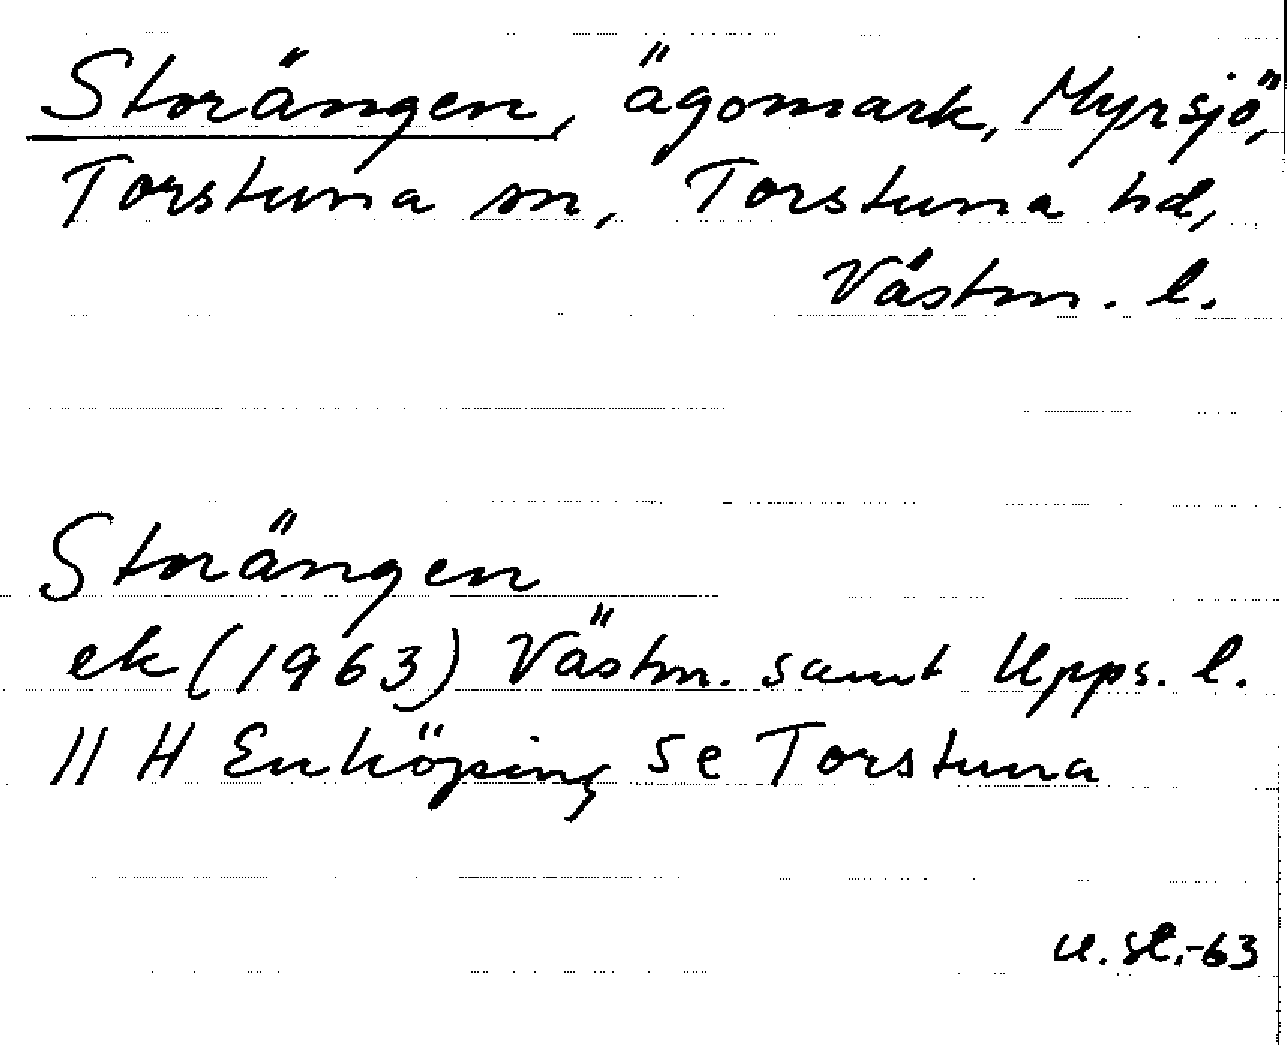 Storängen, ägomark, Myrsjö,
Torstuna sn, Torstuna hd,
Västm. l.
Storängen
ek (1963) Västm. samt Upps. l.
11 H Enköping 5e Torstuna
u. sl.-63